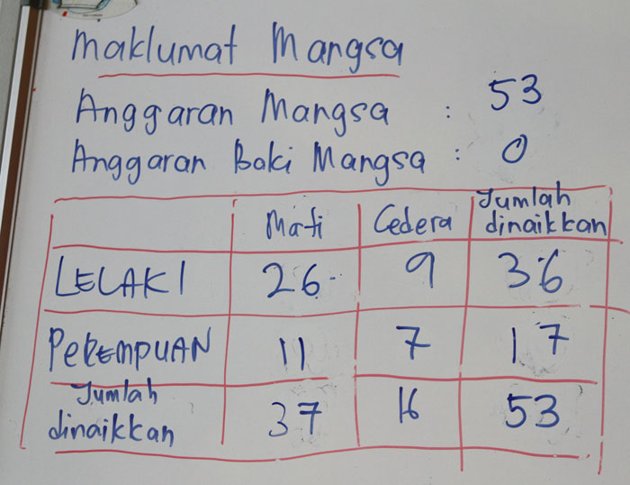 Maklumat Mangsa
Anggaran Mangsa : 53
Anggaran Baki Mangsa : 0
Mati Cedera Jumlah dinaikkan
LELAKI 26 9 36
PEREMPUAN 11 7 17
Jumlah dinaikkan 37 16 53